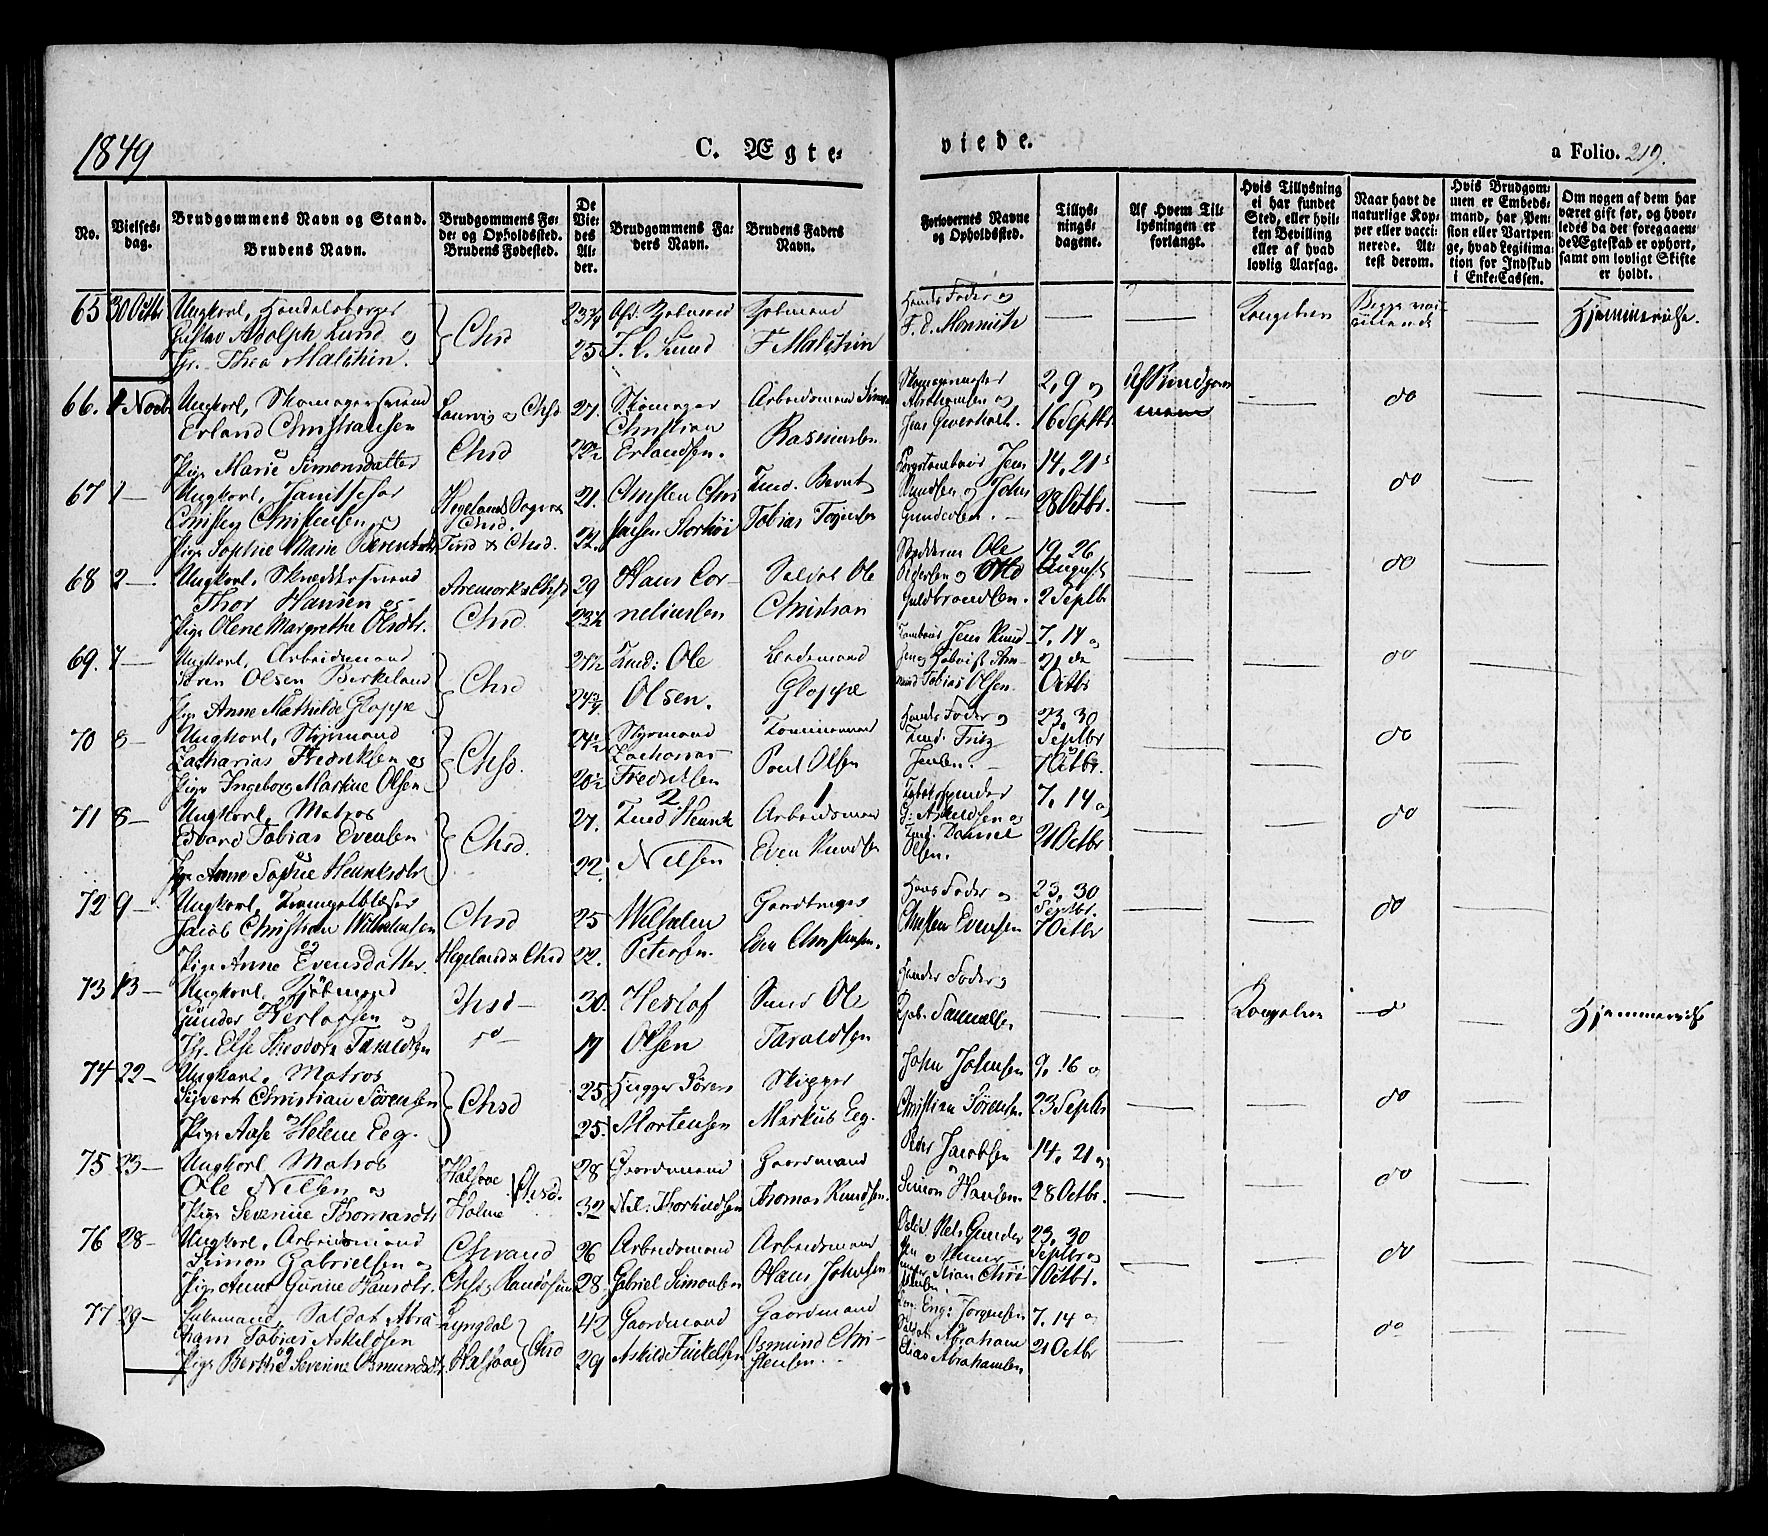 1849
C. Ægte-
viede.
a Folio. 219.
No.
Vielses-
dag.
Brudgommens Navn og Stand.
Brudens Navn.
Brudgommens Fø-
de- og Opholdssted.
Brudens Fødested.
De
Vie-
des
Al-
der.
Brudgommens Fa-
ders Navn.
Brudens Faders
Navn.
Forlovernes Navne
og Opholdssted.
Tillys-
nings-
dagene.
Af Hvem Til-
lysningen er
forlangt.
Hvis Tillysning
ei har fundet
Sted, eller hvil-
ken Bevilling
eller af hvad
lovlig Aarsag.
Naar havt de
naturlige Kop-
per eller vacci-
nerede. At-
test derom.
Hvis Brudgom-
men er Embeds-
mand, har Pen-
sion eller Vartpen-
ge, hvad Legitima-
tion for Indskud
i Enke-Cassen.
Om nogen af dem har
været gift før, og hvor-
ledes da det foregaaen-
de Ægteskab er ophørt,
samt om lovligt Skifte
er holdt.
65 30 Octbr Ungkarl, Handelsborger
Gustav Adolph Lund og
Jfr. Thea Malthin.
Chsd
23¾
25
Lund
F. Malthin
Hendes Fader og
Kongebrev
Hjemmevielse.
66. 1 Novbr Ungkarl, Skomagersvend
Erland Christiansen
Pige Marie Simonsdatter
Laurvig og Chsd
Chsd
27.
22½
Skomager
Christian
Erlandsen.
Arbeidsmand Simon
Rasmussen
Skomagermester
Abrahamsen og
2, 9 og
16 Septbr.
Af Brudgom-
men
do
67 1 — Ungkarl, Janitschar
Christen Christensen og
Pige Sophie Marie Berentsdtr
Hegelands Sogn
Chsd.
21.
22.
Tobias
Jens
Knudsen og John
Gundersen.
14. 21 &
28 Octbr.
do
68 2 — Ungkarl, Skræddersvend
Thor Hansen og
Pige Olene Margrethe Olsdtr.
Aremark & Chsd
Chsd.
29
23½
Hans Cor-
neliussen
Soldat Ole
Christian
Ole
Pedersen og Otto
Guldbrandsen.
19. 26
August
2 Septbr
do
69. 7 — Ungkarl, Arbeidsmand
Søren Olsen Birkeland
Pige Anne Mathilde Gloppe
Chsd
24¾
Ole
Olsen.
Gloppe
Tambour Jens Knud-
sen og
Tobias Olsen.
7. 14 og
21 de
Octbr
do
70 8 — Ungkarl, Styrmand
Zacharias Fredriksen og
Pige Ingeborg Markine Olsen
Chsd.
24½
20½
Styrmand
Zacharias
Fredriksen
Tømmermand
Poul Olsen
Hendes Fader og
Fritz
Jensen.
23. 30
Septbr
7 Octbr.
do
71 8 — Ungkarl, Matros
Edvard Tobias Evensen
og
Pige Anne Sophie Henriksdtr
Chsd.
27.
22.
2
Henrik
Nilsen
1
Arbeidsmand
Even Knudsen
G. Askildsen og
Daniel
Olsen.
7. 14 og
21 Octbr
do
72 9 — Ungkarl, Trompetblæser
Jacob Christian Wilhelmsen
og
Pige Anne Evensdatter.
Chsd
Hegeland & Chsd
25
22.
Wilhelm
Petersen.
Even Christensen.
Hans Fader og
Christen Evensen
23, 30
Septbr.
7 Octbr
do
73 13 — Ungkarl, Kjøbmand
Gunder Herlofsen og
Jfr. Else Theodora Taraldsen
Chsd —
do —
30.
17
Herlof
Olsen
Ole
Taraldsen
Hendes Fader og
Kjøb. Samuelsen
Kongebrev
do
Hjemmevielse
74 22 — Ungkarl, Matros
Sivert Christian Sørensen
og
Pige Aase Helene Eeg.
Chsd
25
25.
Søren
Mortensen
Skipper
Markus Eeg.
John Johnsen
Christian Sørensen
9, 16 og
23 Septbr
do
75. 23 — Ungkarl, Matros
Ole Nilsen og
Pige Severine Thomasdtr.
Halsaae
Holme
Chsd.
28
32
Gaardmand
Nil: Thorkildsen
Gaardmand
Thomas Knudsen.
Peder Jacobsen
og
Simon Hansen.
14. 21 og
28 Octbr.
do
76 28 — Ungkarl, Arbeidsmand
Simon Gabrielsen og
Pige Anne Gunine Hansdtr.
Chrsand
Chsd & Randøsund
26
28
Arbeidsmand
Gabriel Simonsen
Arbeidsmand
Hans Johnsen
23. 30
Septbr og
7 Octbr.
do
77 29 — Enkemand, Soldat Abra-
ham Tobias Askildsen
og
Pige Berthe Severine Osmundsdtr
Lyngdal
Halsaae
Chsd
42
29
Gaardmand
Askild Finkelsen
Gaardmand
Osmund Chri-
stensen.
Jørgensen
Soldat Abraham
Elias Abrahamsen
7. 14 og
21 Octbr
do